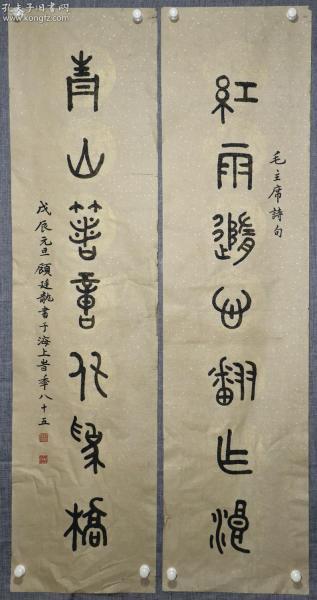 毛主席詩句
紅雨隨心翻作浪
青山著意化為橋
戊辰元旦顧廷龍書于海上旹年八十五
孔夫子旧书网
www.kongfz.com